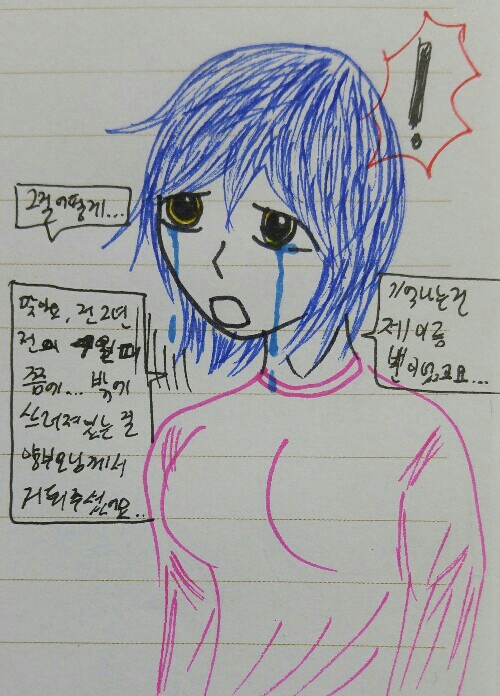 !
그걸 어떻게...
맞아요, 전 2년
전의 4월 때
쯤에... 밖에
쓰러져있는 걸
양부모님께서
거둬주셨어요..
기억나는건
제 이름
뿐이었고요...